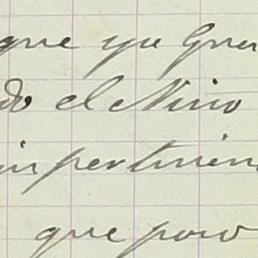 que ya Gue
do el Nino
impertinen
que poco